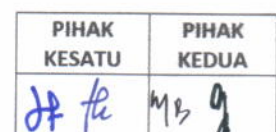 PIHAK KESATU
PIHAK KEDUA
MB